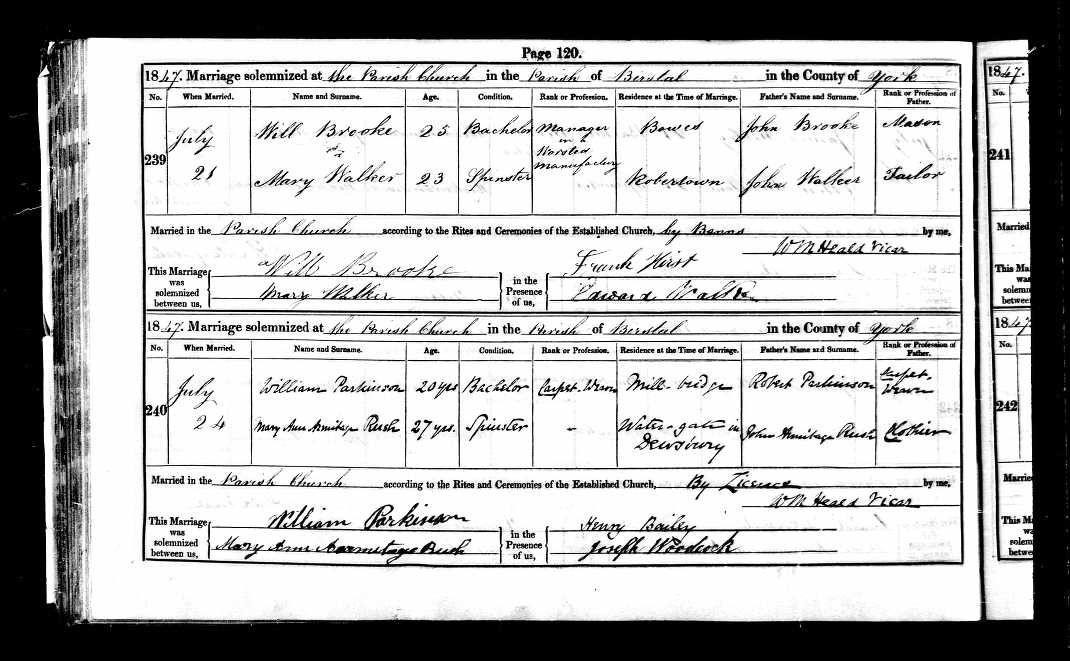 Page 120.
1847. Marriage solemnized at the Parish Church in the Parish of Birstal in the County of York
No. When Married. Name and Surname. Age. Condition. Rank or Profession. Residence at the Time of Marriage. Father's Name and Surname. Rank or Profession of Father.
239 July 21 Will Brooke 25 Bachelor Manager in a Worsted Manufactory Bowes John Brooke Mason
Mary Walker 23 Spinster Robertown John Walker Tailor
Married in the Parish Church according to the Rites and Ceremonies of the Established Church, by Banns by me,
WM Heald Vicar
This Marriage was solemnized between us, Will Brooke in the Presence of us, Frank Hirst
Mary Walker Edward Walker
1847. Marriage solemnized at the Parish Church in the Parish of Birstal in the County of York
No. When Married. Name and Surname. Age. Condition. Rank or Profession. Residence at the Time of Marriage. Father's Name and Surname. Rank or Profession of Father.
240 July 24 William Parkinson 20 yrs Bachelor Carpet-Weaver Mill-bridge Robert Parkinson Carpet-Weaver
Mary Ann Armitage Rush 27 yrs. Spinster - Water-gate in Dewsbury John Armitage Rush Clothier
Married in the Parish Church according to the Rites and Ceremonies of the Established Church, By Licence by me,
WM Heald Vicar
This Marriage was solemnized between us, William Parkinson in the Presence of us, Henry Bailey
Mary Ann Aarmitage Rush Joseph Woodcock
1847.
No.
241
Married
This Ma
was
solemn
betwe
1847
No.
242
Married
This M
was
solem
betwe